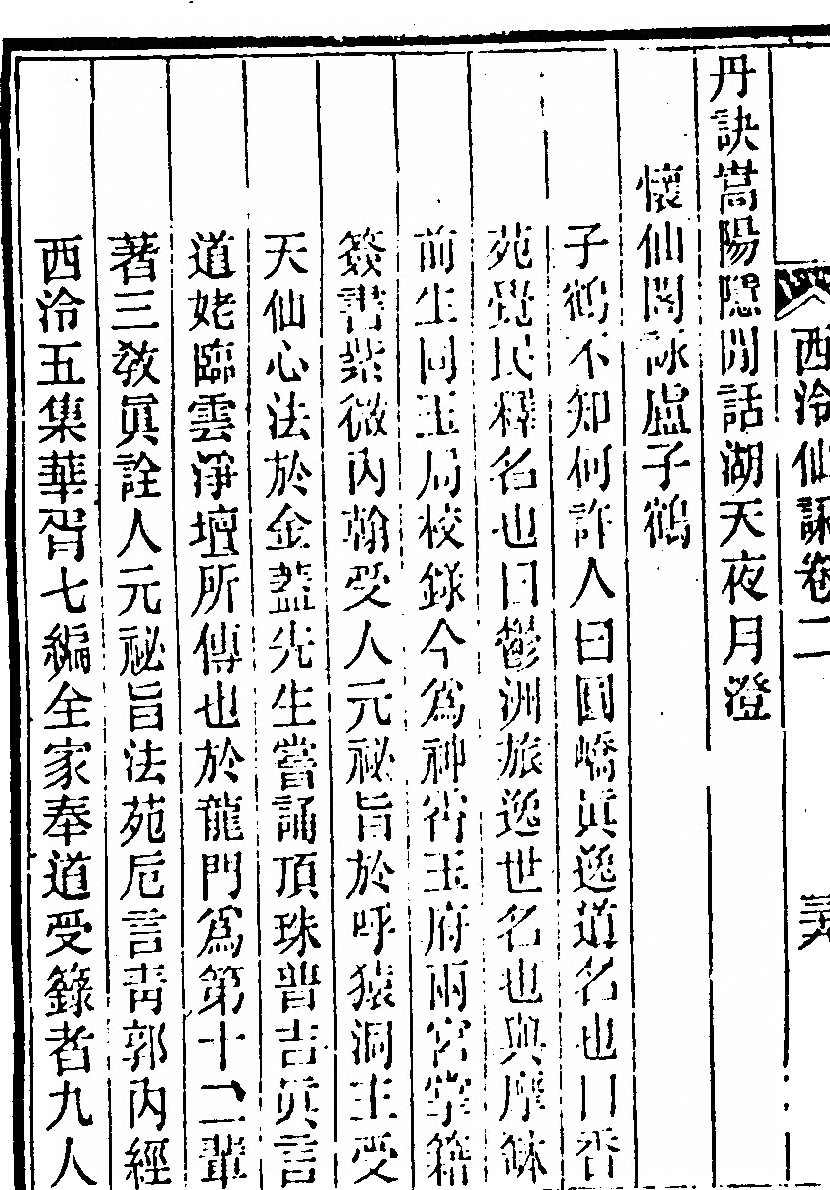 西泠仙詠卷二
丹訣嵩陽隱閒話湖天夜月澄
懷仙閣詠盧子鶴
子鶴不知何許人曰圓嶠眞逸道名也曰香
苑覺民釋名也曰鬱洲旅逸世名也與摩鉢
前生同玉局校錄今爲神霄玉府雨宮掌籍
簽書紫微內翰受人元祕旨於呼猿洞主受
天仙心法於金蓋先生嘗誦頂珠普吉眞言
道姥臨雲淨壇所傳也於龍門爲第十二輩
著三敎眞詮人元祕旨法苑卮言靑郭內經
西泠五集華胥七編全家奉道受籙者九人